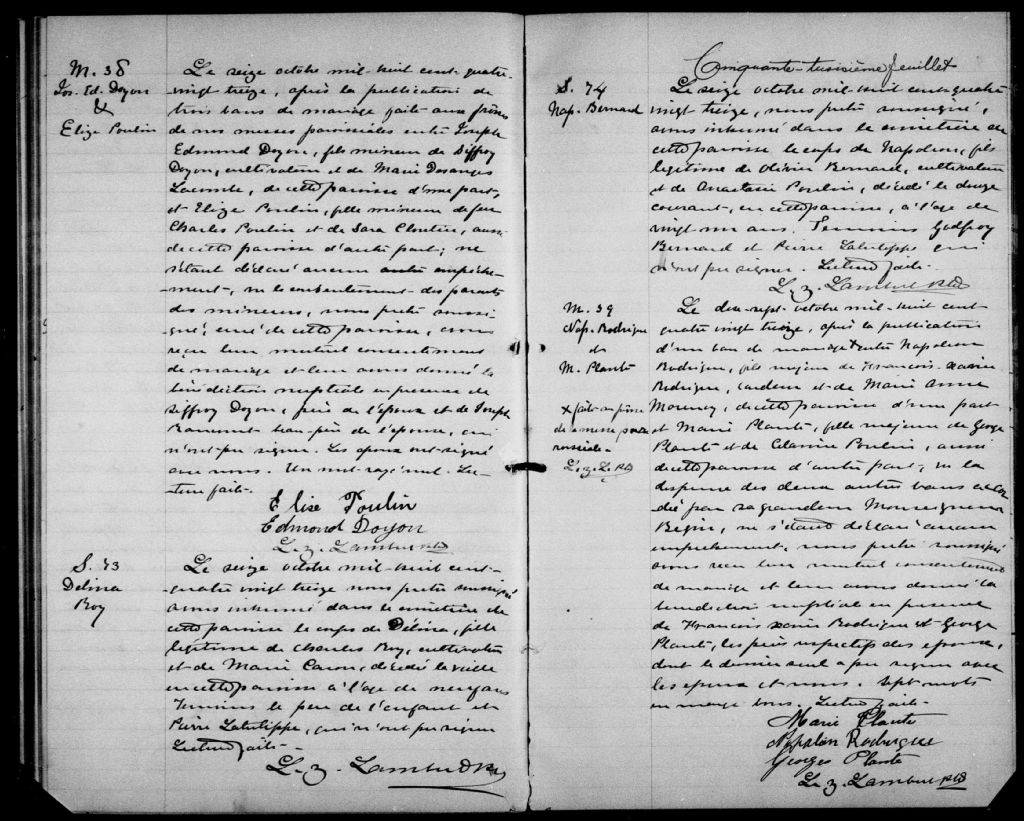 M. 38
Jos. Ed. Doyon
&
Elize Poulin
Le seize octobre mil-huit cent-quatre-
vingt treize, après la publication de
trois bans de mariage faite aux prônes
de nos messes paroissiales entre Joseph
Edmond Doyon, fils mineur de Siffroy
Doyon, cultivateur et de Marie Desanges
Lacombe, de cette paroisse d'une part,
et Elize Poulin, fille mineure de feu
Charles Poulin et de Sara Cloutier, aussi
de cette paroisse d'autre part; ne
s'étant déclaré aucun autre empêche-
ment, vu le consentement des parents
des mineurs, nous prêtre soussi-
gné, curé de cette paroisse, avons
reçu leur mutuel consentement
de mariage et leur avons donné la
bénédiction nuptiale en présence de
Siffroy Doyon, père de l'époux et de Joseph
beau-père de l'épouse, qui
n'ont pu signer. Les époux ont signé
avec nous. Un mot rayé nul. Lec-
ture faite.
Elise Poulin
Edmond Doyon
L. Z. Lambert Ptre
S. 73
Delina
Roy
Le seize octobre mil-huit cent-
quatre vingt treize nous prêtre soussigné
avons inhumé dans le cimetière de
cette paroisse le corps de Délina, fille
légitime de Charles Roy, cultivateur
et de Marie Caron, décédée la veille
en cette paroisse à l'âge de neuf ans
Témoins le père de l'enfant et
Pierre Latulippe, qui n'ont pu signer
Lecture faite.
L. Z. Lambert Ptre
Cinquante-troisième feuillet
S. 74
Nap. Bernard
Le seize octobre mil-huit cent quatre
vingt treize, nous prêtre soussigné,
avons inhumé dans le cimetière de
cette paroisse le corps de Napoléon, fils
légitime de Olivier Bernard, cultivateur
et de Anastasie Poulin, décédé le douze
courant, en cette paroisse, à l'âge de
vingt un ans. Témoins Godfroy
Bernard et Pierre Latulippe qui
n'ont pu signer. Lecture faite.
L. Z. Lambert Ptre
M. 39
Nap. Rodrigue
&
M. Planté
Le dix-sept octobre mil-huit cent
quatre vingt treize, après la publication
d'un ban de mariage x entre Napoléon
Rodrigue, fils majeur de François-Xavier
Rodrigue, et de Marie Anne
de cette paroisse d'une part
et Marie Planté, fille majeure de George
Planté et de Célavine Poulin, aussi
de cette paroisse d'autre part; vu la
dispense des deux autres bans accor-
dée par sa grandeur Monseigneur
Bégin, ne s'étant déclaré aucun
empêchement, nous prêtre soussigné
avons reçu leur mutuel consentement
de mariage et leur avons donné la
bénédiction nuptiale en présence
de François Xavier Rodrigue et George
Planté, les pères respectifs des époux,
dont le dernier seul a pu signer avec
les époux et nous. Sept mots
en marge bons. Lecture faite.
x faite au prône
de la messe pa-
roissiale
L. Z. L. Ptre
Marie Plante
Napoléon Rodrigue
Georges Plante
L. Z. Lambert Ptre